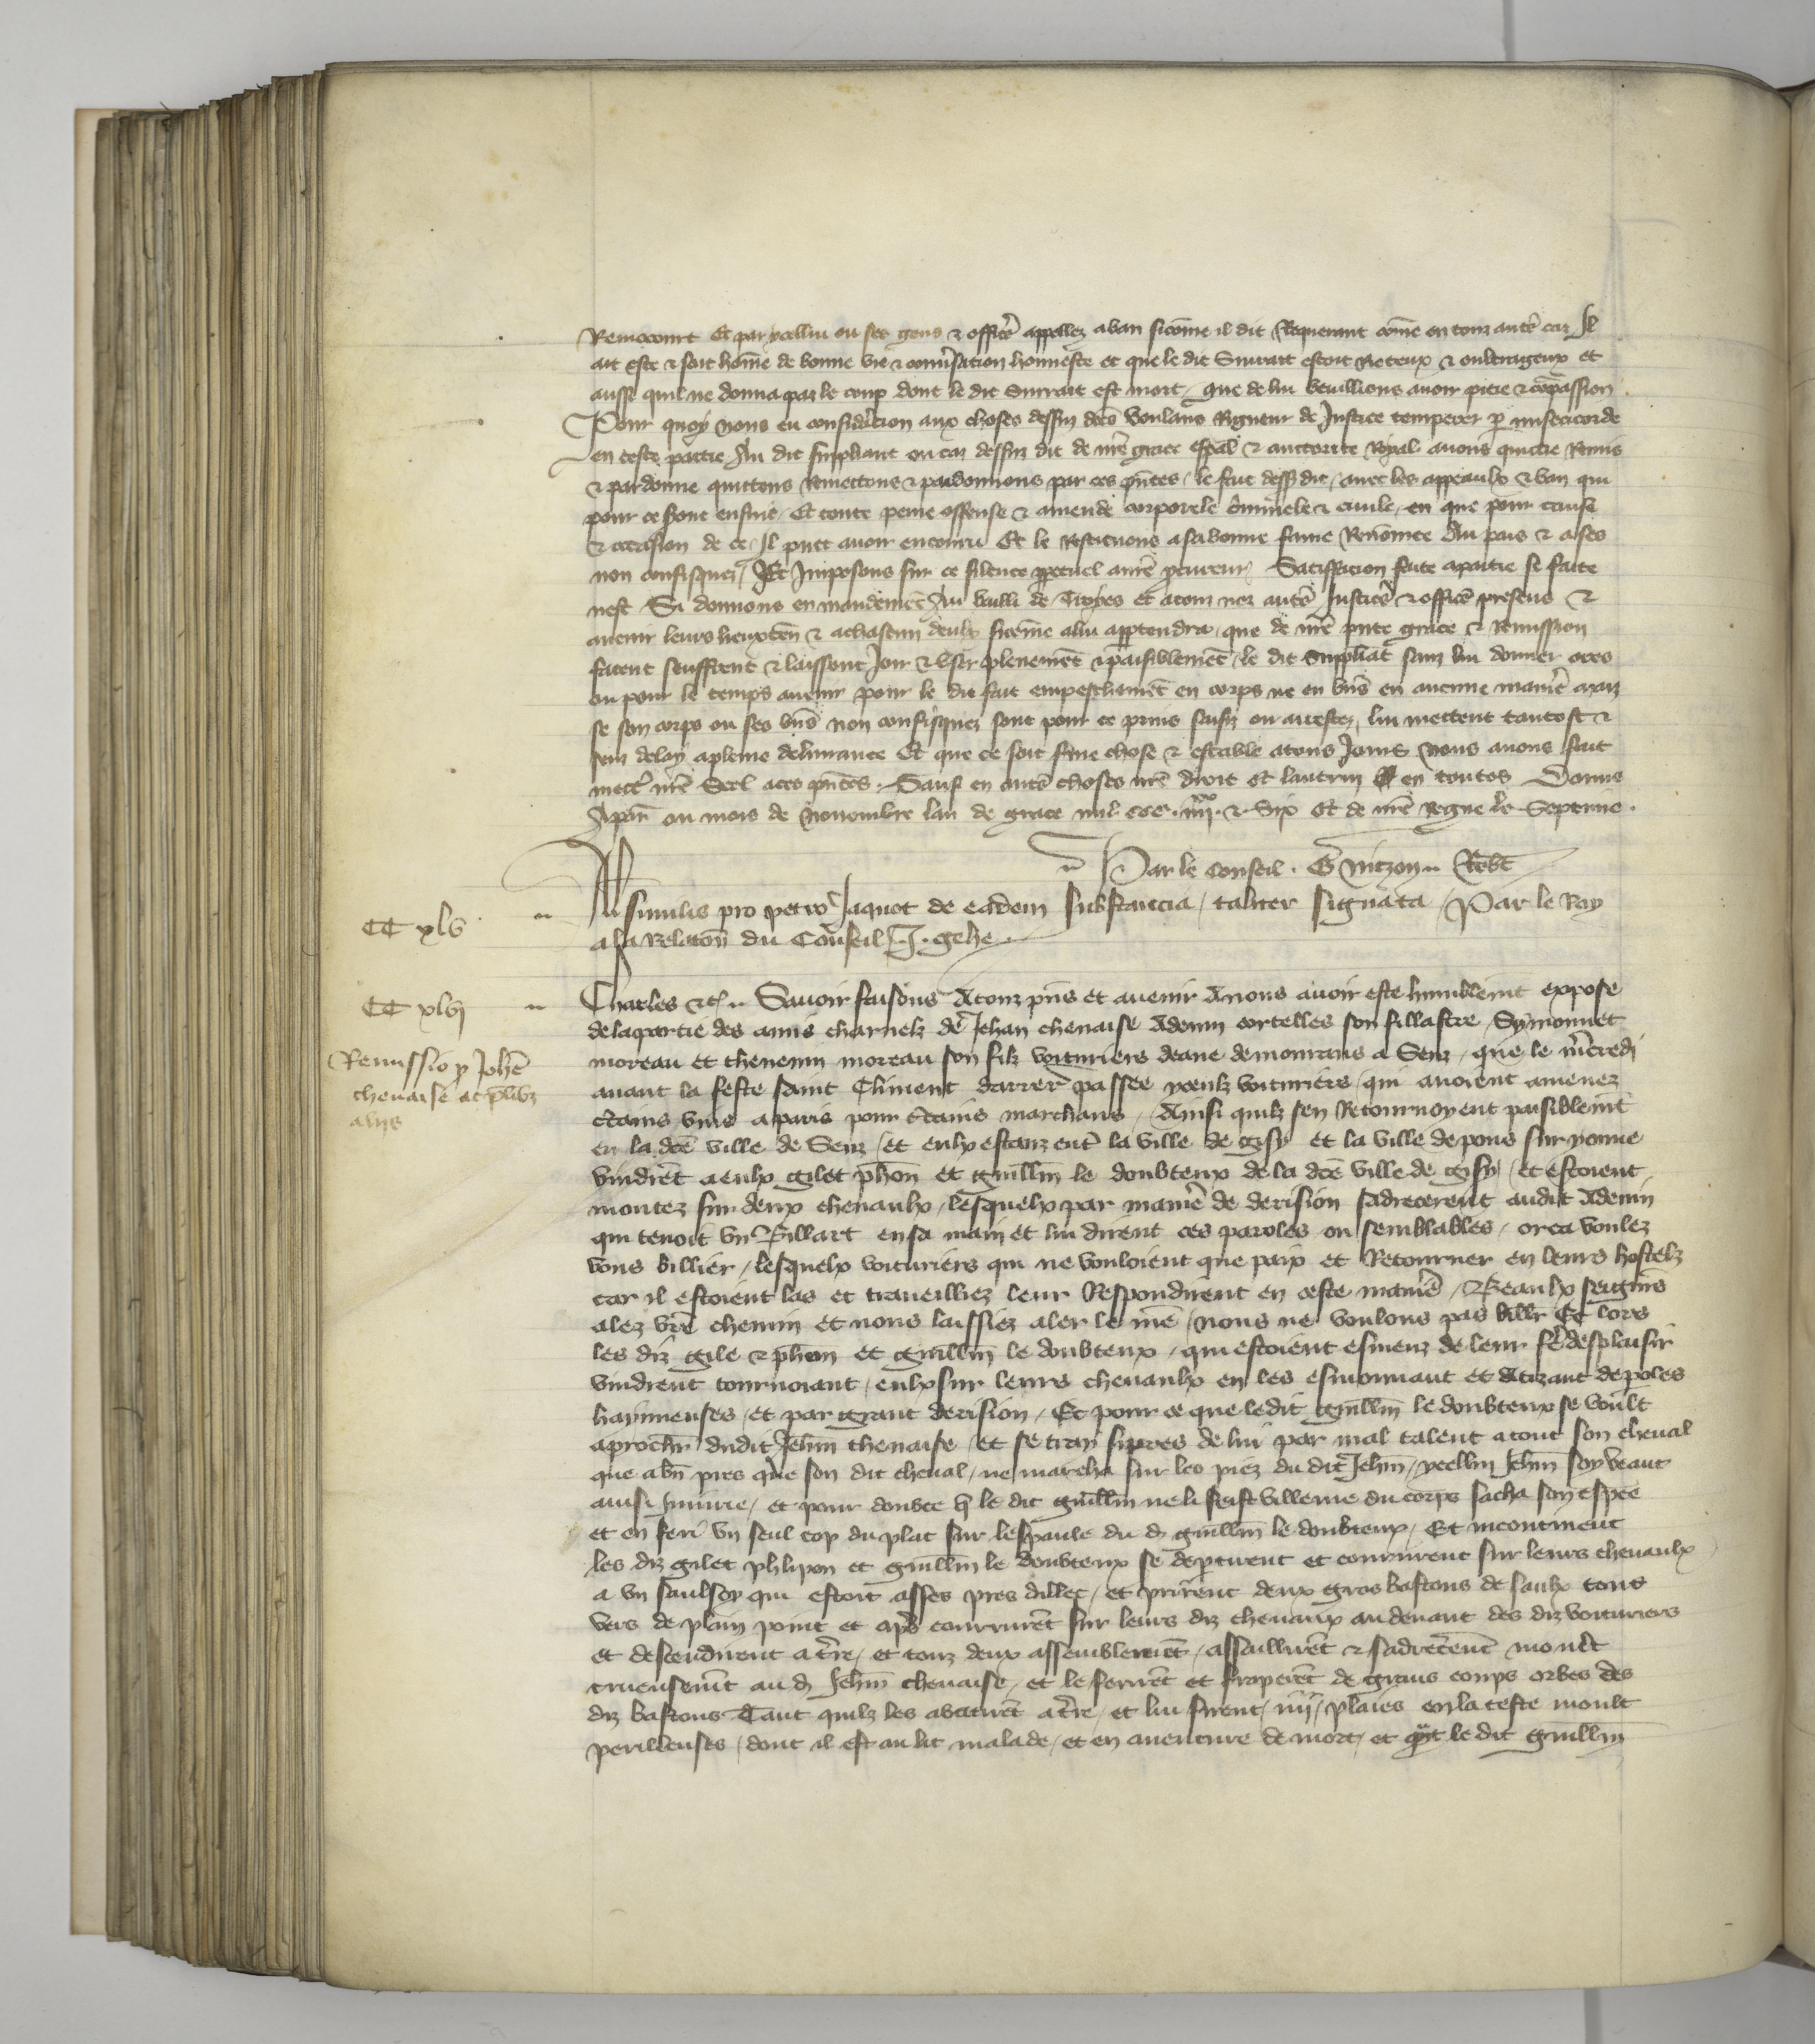 Remocourt Et par ycellui ou ses gens & officẽ appellez a ban sicõme il dit Requerant cõme en touz autẽs caz Il
ait este & soit hõme de bonne vie & conũsation honneste et que le dit Surrait estoit Roteux & oultrageux et
aussi quil ne donna pas le coup dont le dit Surrait est mort, que de lui vueillions avoir pitie & cõpassion
Pour quoy nous eu consideracion aux choses dessus dc̃es voulans Rigueur de Justice temperer p misericorde
en ceste partie Au dit suppliant ou caz dessus dit de nr̃e grace esp̃al & auctorite Royal avons quicte Remis
& pardonne quittons Remettons & pardonnons par ces p̃ntes, le fait dess9 dit, avec les appeaulx & ban qui
pour ce sont ensuiz, Et toute peine offense & amende corporele criminele & civile, en que pour cause
& occasion de ce, Il puet avoir encouru Et le Restituons a sa bonne fame Renõmee Au pais & a ses
non confisquez, Et Imposons sur ce silence ppetuel a nr̃e pcureur, Satiffacion faite a partie se faite
nest Si donnons en mandemẽt Au bailli de Troyes et a touz noz autẽs Justicẽs & officẽs presens &
avenir leurs lieuxteñ & a chascun deulx sicõme a lui apptendra, que de nr̃e p̃nte grace & Remission
facent seuffrent & laissent Joir & user plenemẽt & paisiblemẽt, le dit suppliãt sanz lui donner ores
ou pour le temps avenir pour le dit fait empeschemẽt en corps ne en biẽs en aucune maniẽ maiz
se son corps ou ses biẽs non confisquez sont pour ce prins saisiz ou arrestez, lui mettent tantost &
sanz delay a pleine delivrance Et que ce soit ferme chose & estable a tous Jours nous avons fait
mettẽ nr̃e Seel a ces p̃ntes. Sauf en autẽs choses nr̃e droit et lautrui en toutes Donne
A paris ou mois de Novembre lan de grace mil ccc. iiii xx & Six Et de nr̃e Regne le Septime.
Par le Conseil. G Vitzon Robt
CC xlv
Alia similis pro petro Jaquot de eadem substancia, taliter signata, Par le Roy
a la Relacõn du Conseil J. gehe
CC xlvj
Remissio p Johẽ
chenaise ac plib9
aliis
Charles &c̃ Savoir faisons A touz p̃ns et avenir A nous avoir este humblem̃t expose
de la partie des amis charnelz de Jehan chenaise Adenin cortelles son fillastre, Symonnet
moreau et thevenin moreau son filz voituriers deaue demourans a Senz, que le m̃credi
avant la feste saint Climent darrer̃ passee yceulz voituriers, qui avoient amenez
c̃tains vins a paris pour c̃tains marchans, Ainsi quilz sen Retournoyent paisiblem̃t
en la dc̃e ville de Senz, et eulx estanz ent̃ la ville de gisy et la ville de pons sur yonne
vindrẽt a eulx gilet phõn et guillm̃ le doubteux de la dc̃e ville de gisy, et estoient
montez sur deux chevaulx, lesquelx par maniẽ de derision sadrecerent audit Adenin
qui tenoit un Billart en sa main et lui dirent ces paroles ou semblables, orca voulez
vous billier, lesquelx voituriers qui ne vouloient que paix et Retourner en leurs hostelz
car il estoient las et traveilliez leur Respondirent en ceste maniẽ, Beaulx seign̅rs
alez vr̃e chemin et nous laissiez aler le nr̃e, nous ne voulons pas billr̃ Et lors
les diz gile & phõn et guillm̃ le doubteux, qui estoient esmeuz de leur fẽ desplaisir
vindrent tournoiant, eulx sur leurs chevaulx en les esmouvant et Atizant de poles
haynneuses, et par grant derision, Et pour ce que ledit guillm̃ le doubteux se voult
aprochr̃ dudit Jehan chenaise, et se tray si pres de lui par mal talent a tout son cheval
que a bñ pres que son dit cheval, ne marcha sur les piez du dit Jehñ, ycellui Jehñ soy veant
ainsi Iniurie, et pour doubte q̃ le dit guillm̃ ne li feist villenie du corps sacha son espee
et en feri un seul cop du plat sur lespaule du d guillm̃ le doubteux, Et incontinent
les diz gilet phlipon et guillm̃ le doubteux se deptirent et coururent sur leurs chevaulx
a un saulsoy qui estoit asses pres dillec, et prirent deux gros bastons de saulx tous
vers de plain point et apr̃s coururẽt sur leurs diz chevaux au devant des diz voituriers
et descendirent a t̃re, et touz deux assemblemẽt, assaillirẽt & sadrecẽnt moult
crueusem̃t au d Jehñ chenaise, et le ferirẽt et fraperẽt de grans coups orbes des
diz bastons Tant quilz les abatirẽt a t̃re, et lui firent, iiij, plaies en la teste moult
perilleuses, dont il est au lit malade, et en aventure de mort, et q̃nt le dit guillm̃